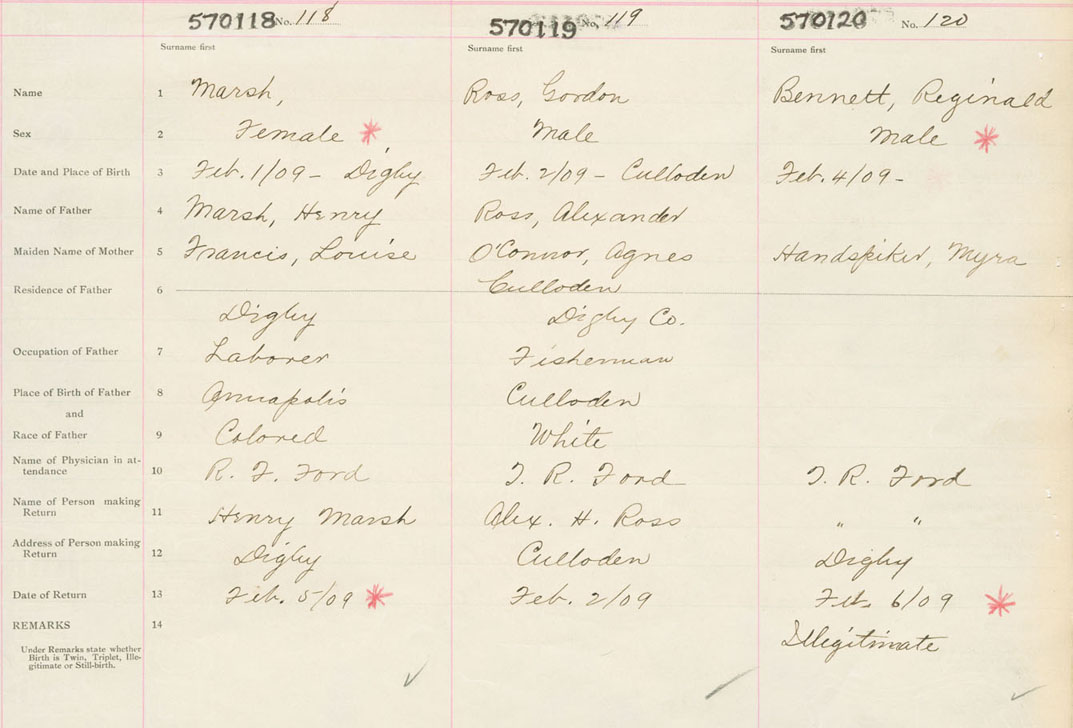 570118 No. 118 570119 No. 119 570120 No. 120
Surname first Surname first Surname first
Name 1 Marsh, Ross, Gordon Bennett, Reginald
Sex 2 Female Male Male
Date and Place of Birth 3 Feb. 1/09 - Digby Feb. 2/09 - Culloden Feb. 4/09 -
Name of Father 4 Marsh, Henry Ross, Alexander
Maiden Name of Mother 5 Francis, Louise O'Connor, Agnes Handspiker, Myra
Residence of Father 6 Culloden
Digby Digby Co.
Occupation of Father 7 Laborer Fisherman
Place of Birth of Father 8 Annapolis Culloden
and
Race of Father 9 Colored White
Name of Physician in at-
tendance 10 R. F. Ford T. R. Ford T. R. Ford
Name of Person making
Return 11 Henry Marsh Alex. H. Ross " "
Address of Person making
Return 12 Digby Culloden Digby
Date of Return 13 Feb. 5/09 Feb. 2/09 Feb. 6/09
REMARKS 14 Illegitimate
Under Remarks state whether
Birth is Twin, Triplet, Ille-
gitimate or Still-birth.